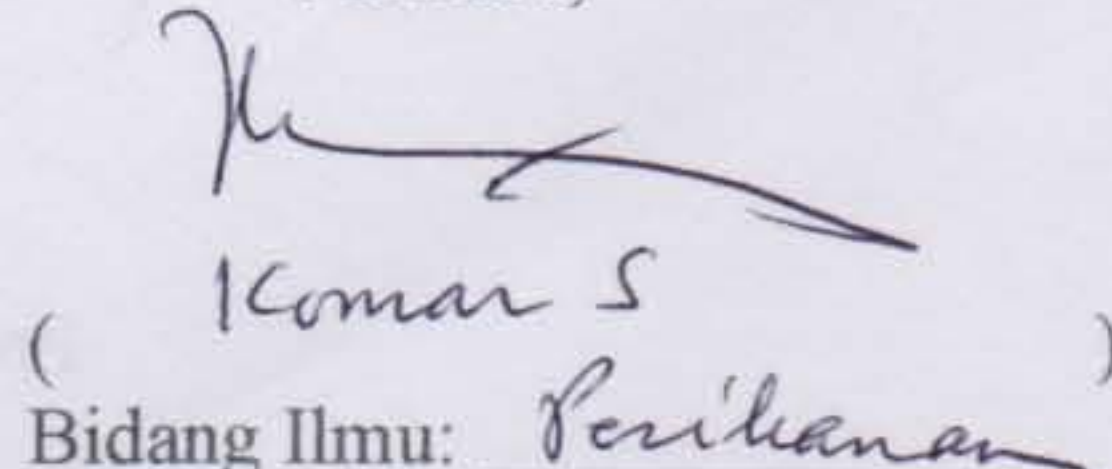 Komar S
( )
Bidang Ilmu: Perikanan